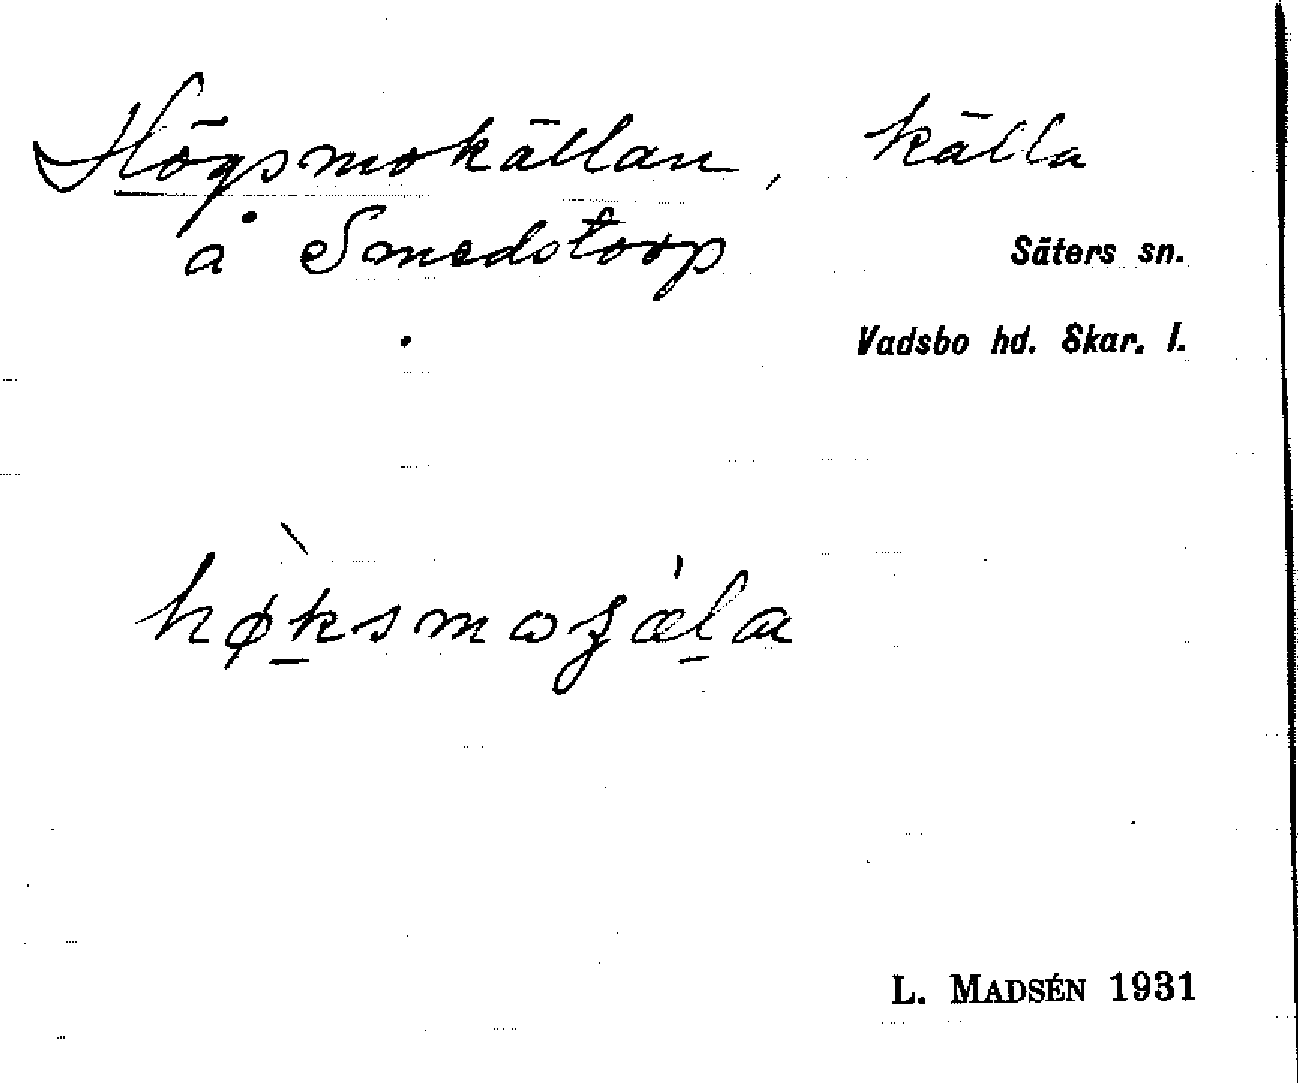 Högsmokällan, källa
å Smedstorp
Säters sn.
Vadsbo hd. Skar. l.
hø̀ksmoʒæ̀la
L. MADSÉN 1931